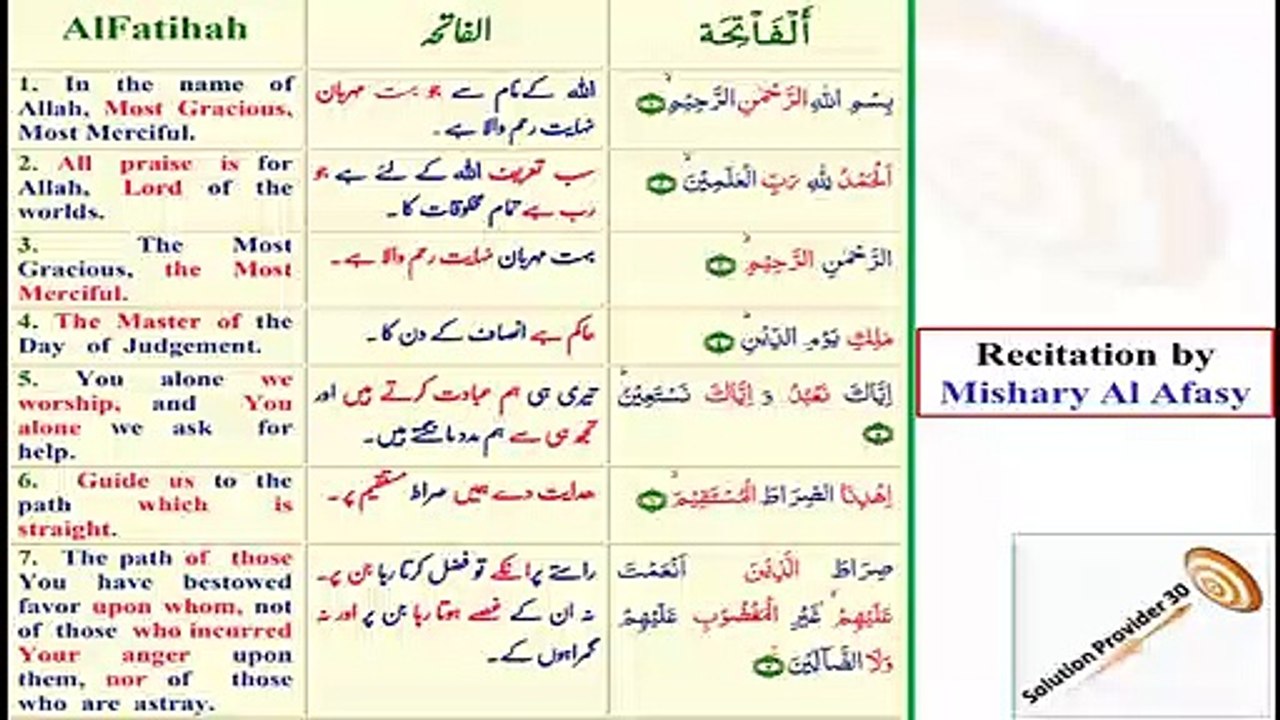 AlFatihah
الفاتحہ
اَلْفَاْتِحَة
1. In the name of
Allah, Most Gracious,
Most Merciful.
اللہ کے نام سے جو بہت مہربان
نہایت رحم والا ہے۔
بِسْمِ اللهِ الرَّحْمٰنِ الرَّحِيْمِ
2. All praise is for
Allah, Lord of the
worlds.
سب تعریف اللہ کے لئے ہے جو
رب ہے تمام مخلوقات کا۔
اَلْحَمْدُ لِلّٰهِ رَبِّ الْعٰلَمِيْنَ
3. The Most
Gracious, the Most
Merciful.
بہت مہربان نہایت رحم والا ہے۔
الرَّحْمٰنِ الرَّحِيْمِ
4. The Master of the
Day of Judgement.
حاکم ہے انصاف کے دن کا۔
مٰلِكِ يَوْمِ الدِّيْنِ
5. You alone we
worship, and You
alone we ask for
help.
تیری ہی ہم عبادت کرتے ہیں اور
تجھ ہی سے ہم مدد مانگتے ہیں۔
اِيَّاكَ نَعْبُدُ وَ اِيَّاكَ نَسْتَعِيْنُ
6. Guide us to the
path which is
straight.
ھدایت دے ہمیں صراط مستقیم پر۔
اِهْدِنَا الصِّرَاطَ الْمُسْتَقِيْمَ
7. The path of those
You have bestowed
favor upon whom, not
of those who incurred
Your anger upon
them, nor of those
who are astray.
راستے پر انکے تو فضل کرتا رہا جن پر۔
نہ ان کے غصے ہوتا رہا جن پر اور نہ
گمراہوں کے۔
صِرَاطَ الَّذِيْنَ اَنْعَمْتَ
عَلَيْهِمْ غَيْرِ الْمَغْضُوْبِ عَلَيْهِمْ
وَلَا الضَّآلِّيْنَ
Recitation by
Mishary Al Afasy
Solution Provider 30